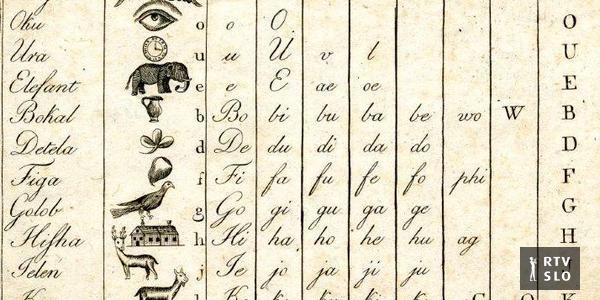 Oku o o O O
Ura u u U v l U
Elefant e e E ae oe E
Bokal b Bo bi bu ba be wo W B
Detela d De du di da do D
Figa f Fi fa fu fe fo phi F
Golob g Go gi gu ga ge G
Hisha h Hi ha ho he hu ag H
Jelen j Je jo ja ji ju
RTV
SLO